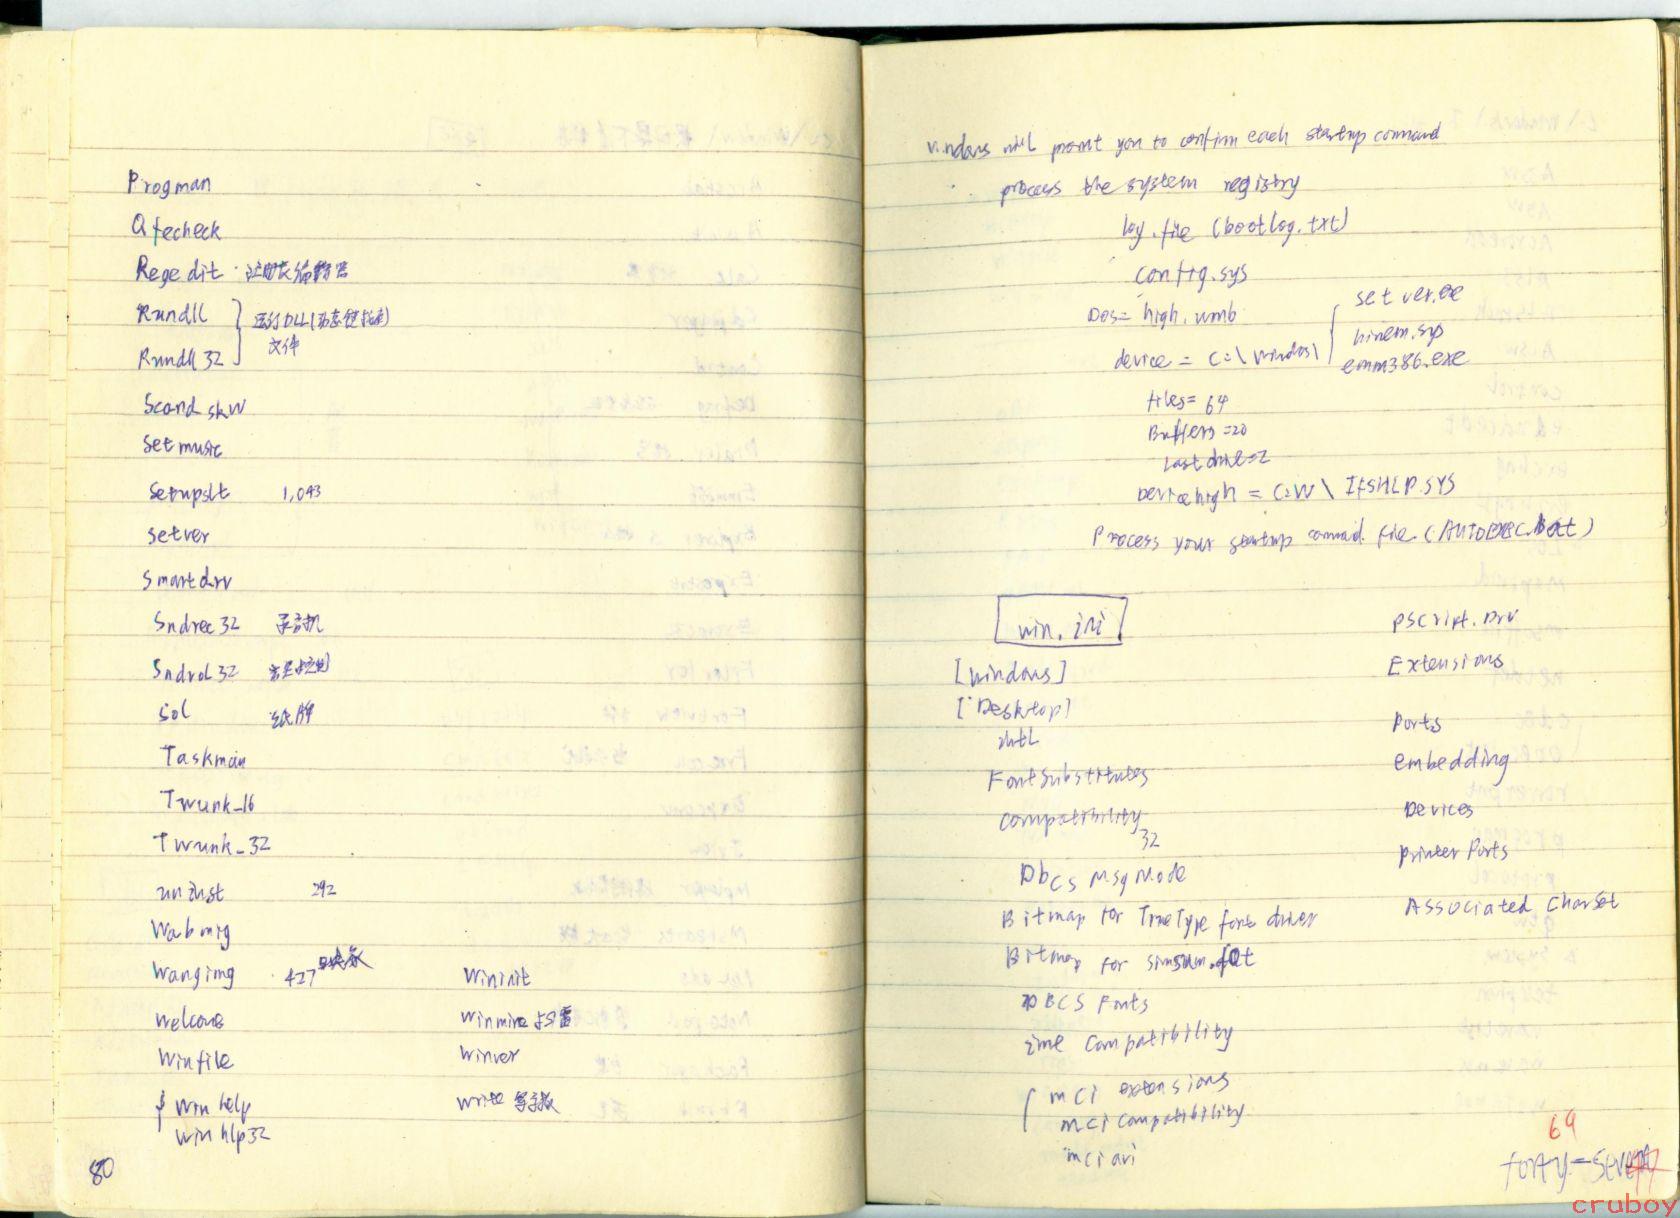 Progman
Qfecheck
Regedit · 注册表编辑器
Rundll
Rundll 32
运行DLL(动态链接库)
文件
Scandskw
Setmusic
Setupslt 1,043
setver
Smartdrv
Sndrec32 录音机
Sndvol32 音量控制
Sol 纸牌
Taskman
Twunk_16
Twunk_32
uninst 292
Wabmig
Wangimg 427 映象
Welcome
Winfile
Winhelp
winhlp32
80
Wininit
Winmine 扫雷
Winver
write 写字板
Windows will promt you to confirm each startup command
process the system registry
log.file (bootlog.txt)
config.sys
Dos= high.umb
device = C:\windos\
setver.exe
himem.sys
emm386.exe
files= 64
Buffers=20
Lastdrive=Z
Devicehigh = C:W\IFSHLP.SYS
Process your startup command file (AUTOEXEC.bat)
win.ini
[windows]
[Desktop]
intl
FontSubstitutes
compatibility
32
Dbcs Msg Mode
Bitmap for TrueType font driver
Bitmap for simsun.fot
DBCS Fonts
ime compatibility
mci extensions
mci compatibility
mci avi
PSCript.Drv
Extensions
Ports
embedding
Devices
printer Ports
Associated CharSet
69
forty-seven
cruboy